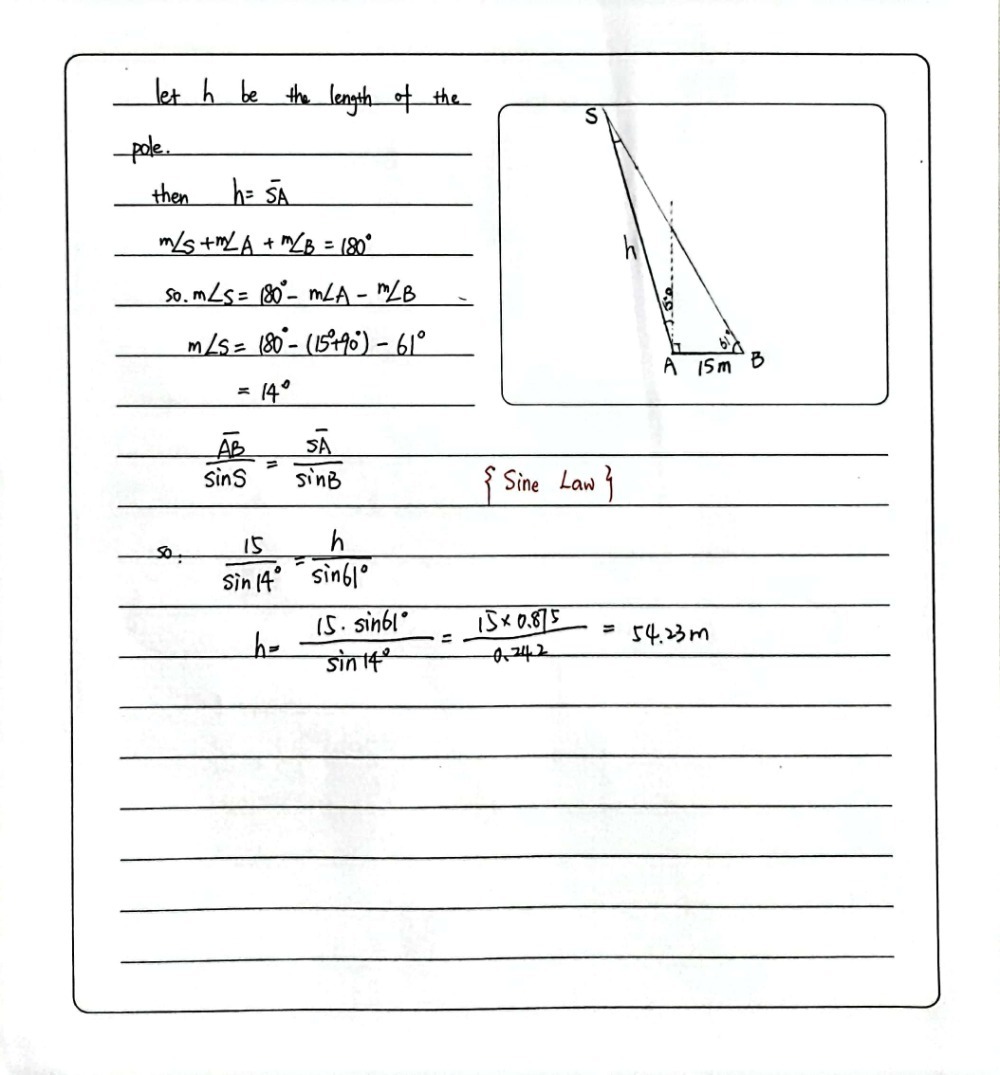 let h be the length of the
pole.
then h= S̅A̅
m∠S+m∠A + m∠B = 180°
so. m∠S= 180°- m∠A - m∠B
m∠S= 180°- (15°+90°) - 61°
= 14°
A̅B̅/sinS = S̅A̅/sinB
{ Sine Law }
so: 15/sin14° = h/sin61°
h= 15. sin61°/sin14° = 15×0.875/0.242 = 54.23m
S
h
15°
61°
A 15m B